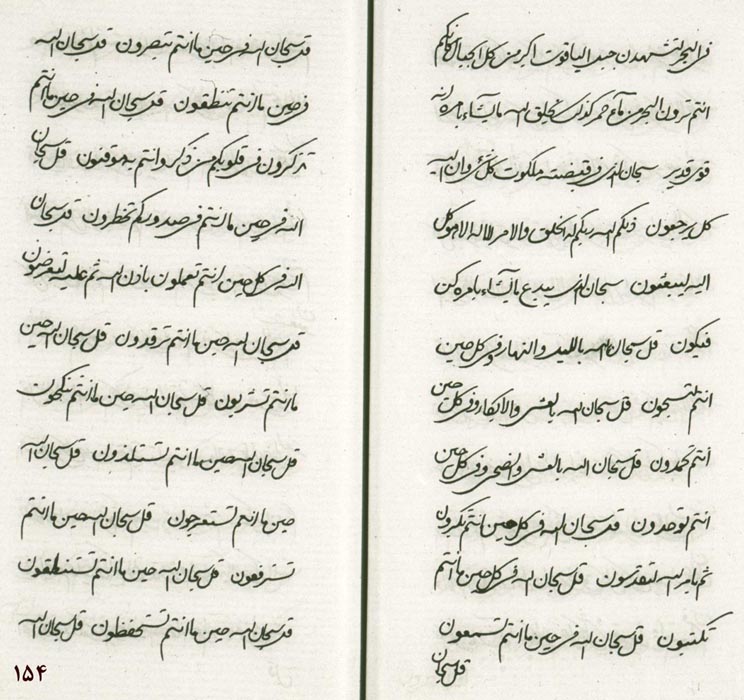 فی البحر لتشهدن جبد الیاقوت اکبر من کل الجبال کانکم
انتم ترون البحر من ماء خمر کذلک یخلق الله ما یشاء بامره انه
قوی قدیر سبحان الذی فی قبضته ملکوت کل شیء وان الیه
کل یرجعون ذلکم الله ربکم له الخلق والامر لا اله الا هو کل
الیه لیبعثون سبحان الذی یبدع ما یشاء بامره کن
فیکون قل سبحان الله باللیل والنهار وفی کل حین
انتم تسبحون قل سبحان الله بالعشی والابکار وفی کل حین
انتم تحمدون قل سبحان الله بالعشی والضحی وفی کل حین
انتم توحدون قل سبحان الله فی کل حین انتم تکبرون
ثم بامر الله لتقدسون قل سبحان الله فی کل حین ما انتم
تکتبون قل سبحان الله فی حین ما انتم تسمعون
قل سبحان
قل سبحان الله فی حین ما انتم تبصرون قل سبحان الله
فی حین ما انتم تنطقون قل سبحان الله فی حین ما انتم
تذکرون فی قلوبکم من ذکر وانتم به موقنون قل سبحان
الله فی حین ما انتم فی صدورکم تخطرون قل سبحان
الله فی کل حین انتم تعملون باذن الله ثم علیه لتعرضون
قل سبحان الله حین ما انتم ترقدون قل سبحان الله حین
ما انتم تشربون قل سبحان الله حین ما انتم تنکحون
قل سبحان الله حین ما انتم تستلذون قل سبحان الله
حین ما انتم تستعرجون قل سبحان الله حین ما انتم
تسترفعون قل سبحان الله حین ما انتم تستنطقون
قل سبحان الله حین ما انتم تستحفظون قل سبحان الله
۱۵۴